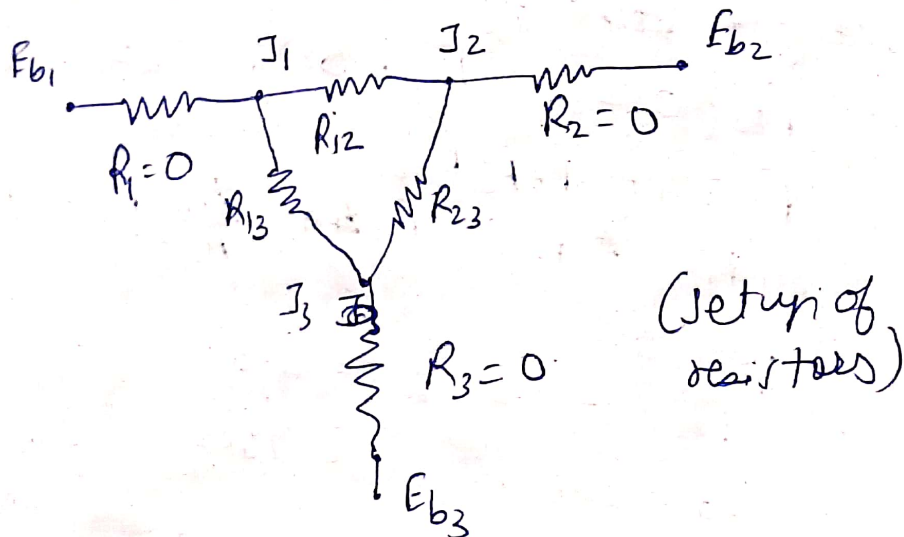 E_b1
J_1
J_2
E_b2
R_1 = 0
R_12
R_2 = 0
R_13
R_23
J_3
R_3 = 0
(setup of
resistors)
E_b3